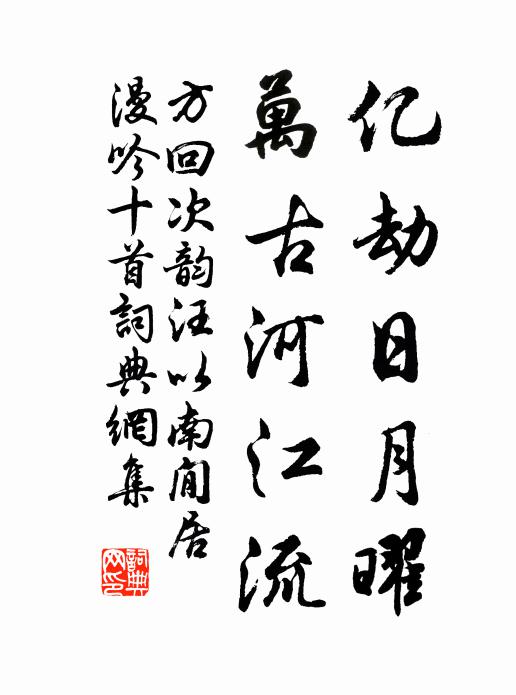 亿劫日月曜
萬古河江流
方回次韵汪以南閒居
漫吟十首詞典網集
詞典网印